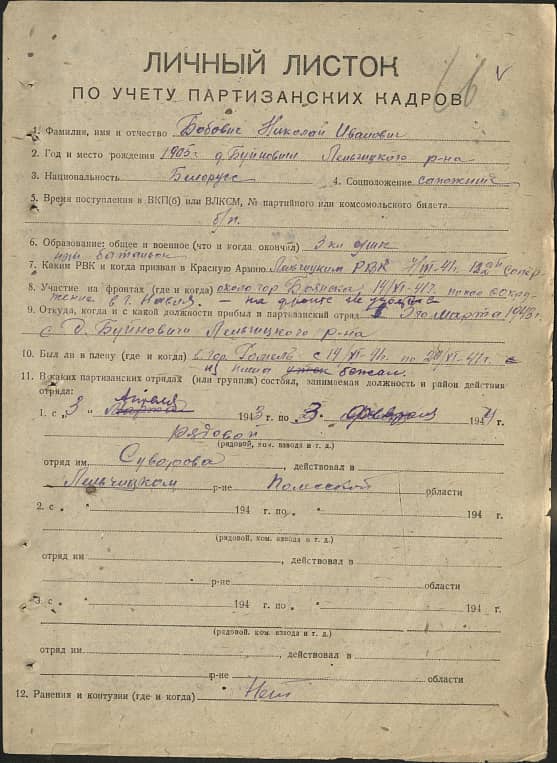 66 v
ЛИЧНЫЙ ЛИСТОК
ПО УЧЕТУ ПАРТИЗАНСКИХ КАДРОВ
1. Фамилия, имя и отчество Бобович Николай Иванович
2. Год и место рождения 1905 г. д. Буйновичи Лельчицкого р-на
3. Национальность Белорус 4. Соцположение сапожник
5. Время поступления в ВКП(б) или ВЛКСМ, № партийного или комсомольского билета
б/п.
6. Образование: общее и военное (что и когда окончил) 3 кл
7. Каким РВК и когда призван в Красную Армию Лельчицким РВК 41 г.
8. Участие на фронтах (где и когда) около гор 41 г. попал в окру-
жение в г. — на фронте не участв
9. Откуда, когда и с какой должности прибыл в партизанский отряд Марта 1943 г.
с д. Буйновичи Лельчицкого р-на
10. Был ли в плену (где и когда) в гор. Гомель с 14/VI-41 г. по 41 г.
из плена бежал.
11. В каких партизанских отрядах (или группах) состоял, занимаемая должность и район действия
отряда: Апреля
1. с „ 3 „ 1943 г. по 3. Февраля 1944 г.
рядовой
(рядовой, ком. взвода и т. д.)
отряд им Суворова, действовал в
Лельчицком р-не Полесской области
2. с „ „ 194 г. по „ 194 г.
(рядовой, ком. взвода и т. д.)
отряд им , действовал в
р-не области
3. с „ „ 194 г. по „ „ 194 г.
(рядовой, ком. взвода и т. д.)
отряд им , действовал в
р-не области
12. Ранения и контузии (где и когда) Нет